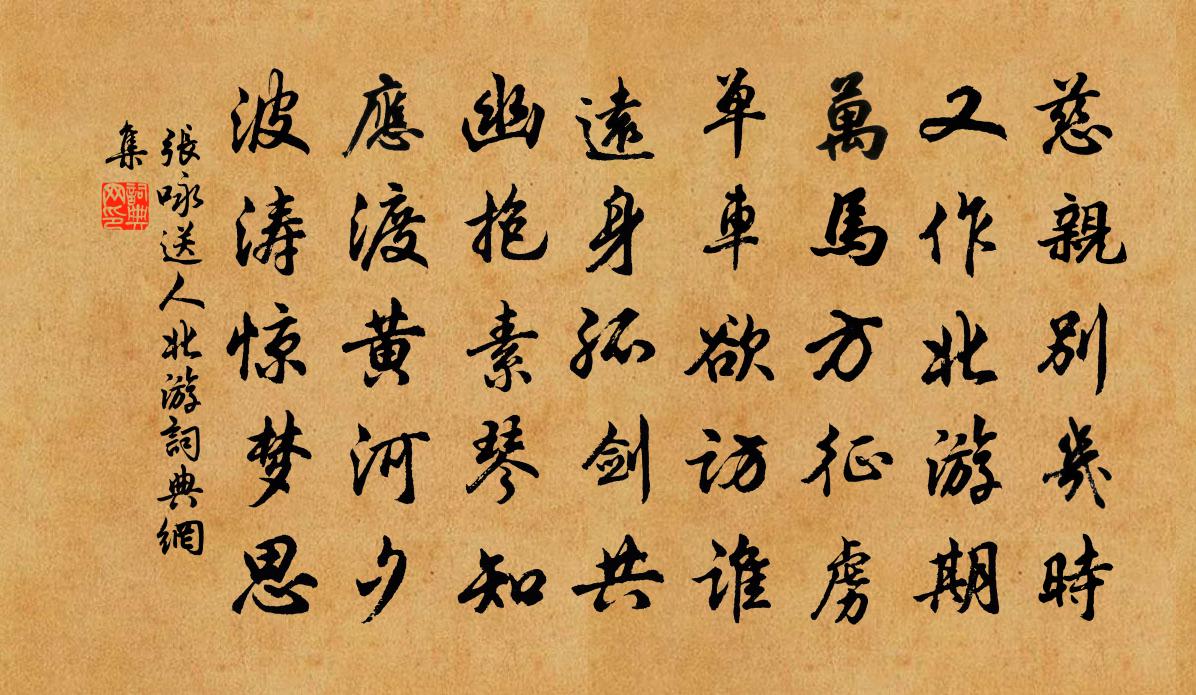 慈親別幾時
又作北游期
萬馬方征虜
單車欲訪誰
遠身孤劍共
幽抱素琴知
應渡黃河夕
波濤惊梦思
張咏送人北游詞典網
集
詞典
网印